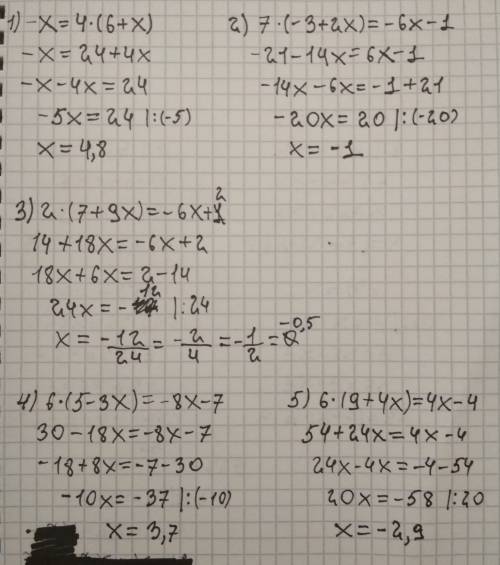 1) -x=4·(6+x)
-x=24+4x
-x-4x=24
-5x=24 |:(-5)
x=4,8
2) 7·(-3+2x)=-6x-1
-21-14x=6x-1
-14x-6x=-1+21
-20x=20 |:(-20)
x=-1
3) 2·(7+9x)=-6x+2
14+18x=-6x+2
18x+6x=2-14
24x=-12 |:24
x=-12/24=-2/4=-1/2=-0,5
4) 6·(5-3x)=-8x-7
30-18x=-8x-7
-18+8x=-7-30
-10x=-37 |:(-10)
x=3,7
5) 6·(9+4x)=4x-4
54+24x=4x-4
24x-4x=-4-54
20x=-58 |:20
x=-2,9